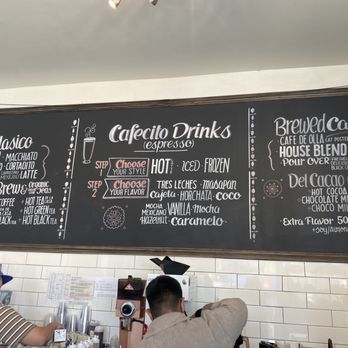 lasico
MACCHIATO
CORTADITO
LATTE
Brews
Organic
COFFEE
HOT TEA
HOT GREEN
HOT BLACK
Cafecito Drinks
(espresso)
STEP 1 Choose YOUR STYLE HOT · ICED · FROZEN
STEP 2 Choose YOUR FLAVOR
TRES LECHES · Mazapan
Cajeta · HORCHATA · COCO
MOCHA MEXICANO VANILLA · Mocha
Hazelnut · Caramelo
Brewed Ca
CAFE DE OLLA
HOUSE BLEND
POUR OVER
Del Cacao
HOT COCOA
CHOCOLATE M
CHOCO MI
Extra Flavor 50
Soy/Almon